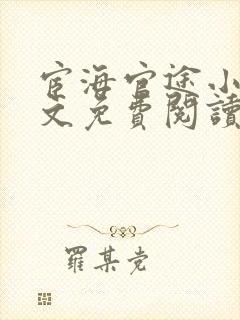 宦海官途小
文免費閱讀
羅某党